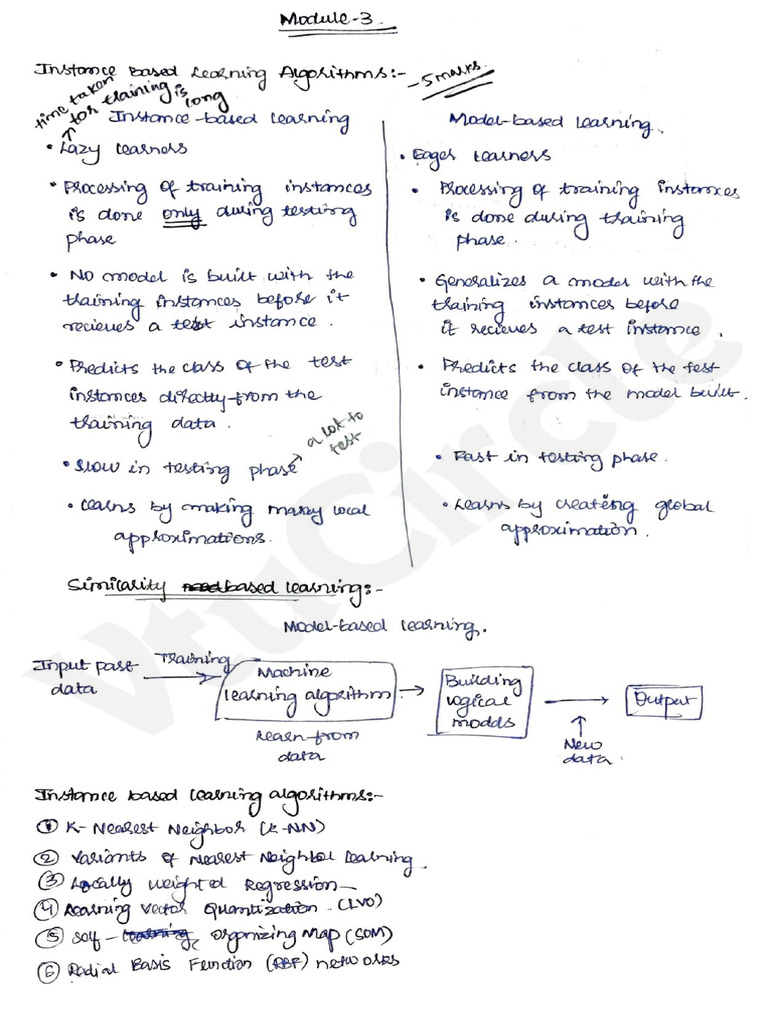 Module-3.
Instance Based Learning Algorithms:- -5 marks.
time taken
for training is
long
Instance-based learning
• Lazy learners
• Processing of training instances
is done only during testing
phase
• No model is built with the
training instances before it
recieves a test instance.
• Predicts the class of the test
instances directly from the
training data.
• Slow in testing phase
a lot to
test
• Learns by making many local
approximations.
Model-based learning.
• Eager learners
• Processing of training instances
is done during training
phase.
• Generalizes a model with the
training instances before
it recieves a test instance.
• Predicts the class of the test
instance from the model built.
• Fast in testing phase.
• Learns by creating global
approximation.
Similarity based learning:-
Model-based learning.
Input past
data
Training
Machine
learning algorithm
learn from
data
Building
logical
models
New
data.
Output
Instance based learning algorithms:-
① K-Nearest Neighbor (K-NN)
② Variants of Nearest Neighbor learning.
③ Locally Weighted Regression
④ Learning Vector Quantization (LVQ)
⑤ Self-Organizing Map (SOM)
⑥ Radial Basis Function (RBF) networks
VtuCircle